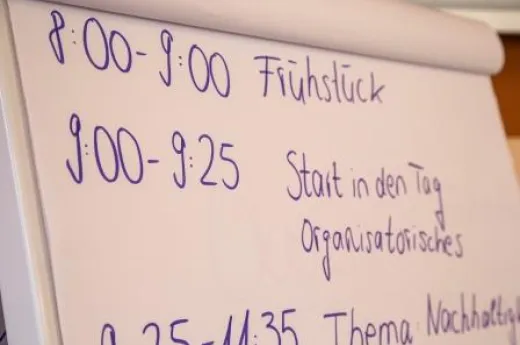 8:00-9:00 Frühstück
9:00-9:25 Start in den Tag
Organisatorisches
9:25-11:35 Thema: Nachhaltigk